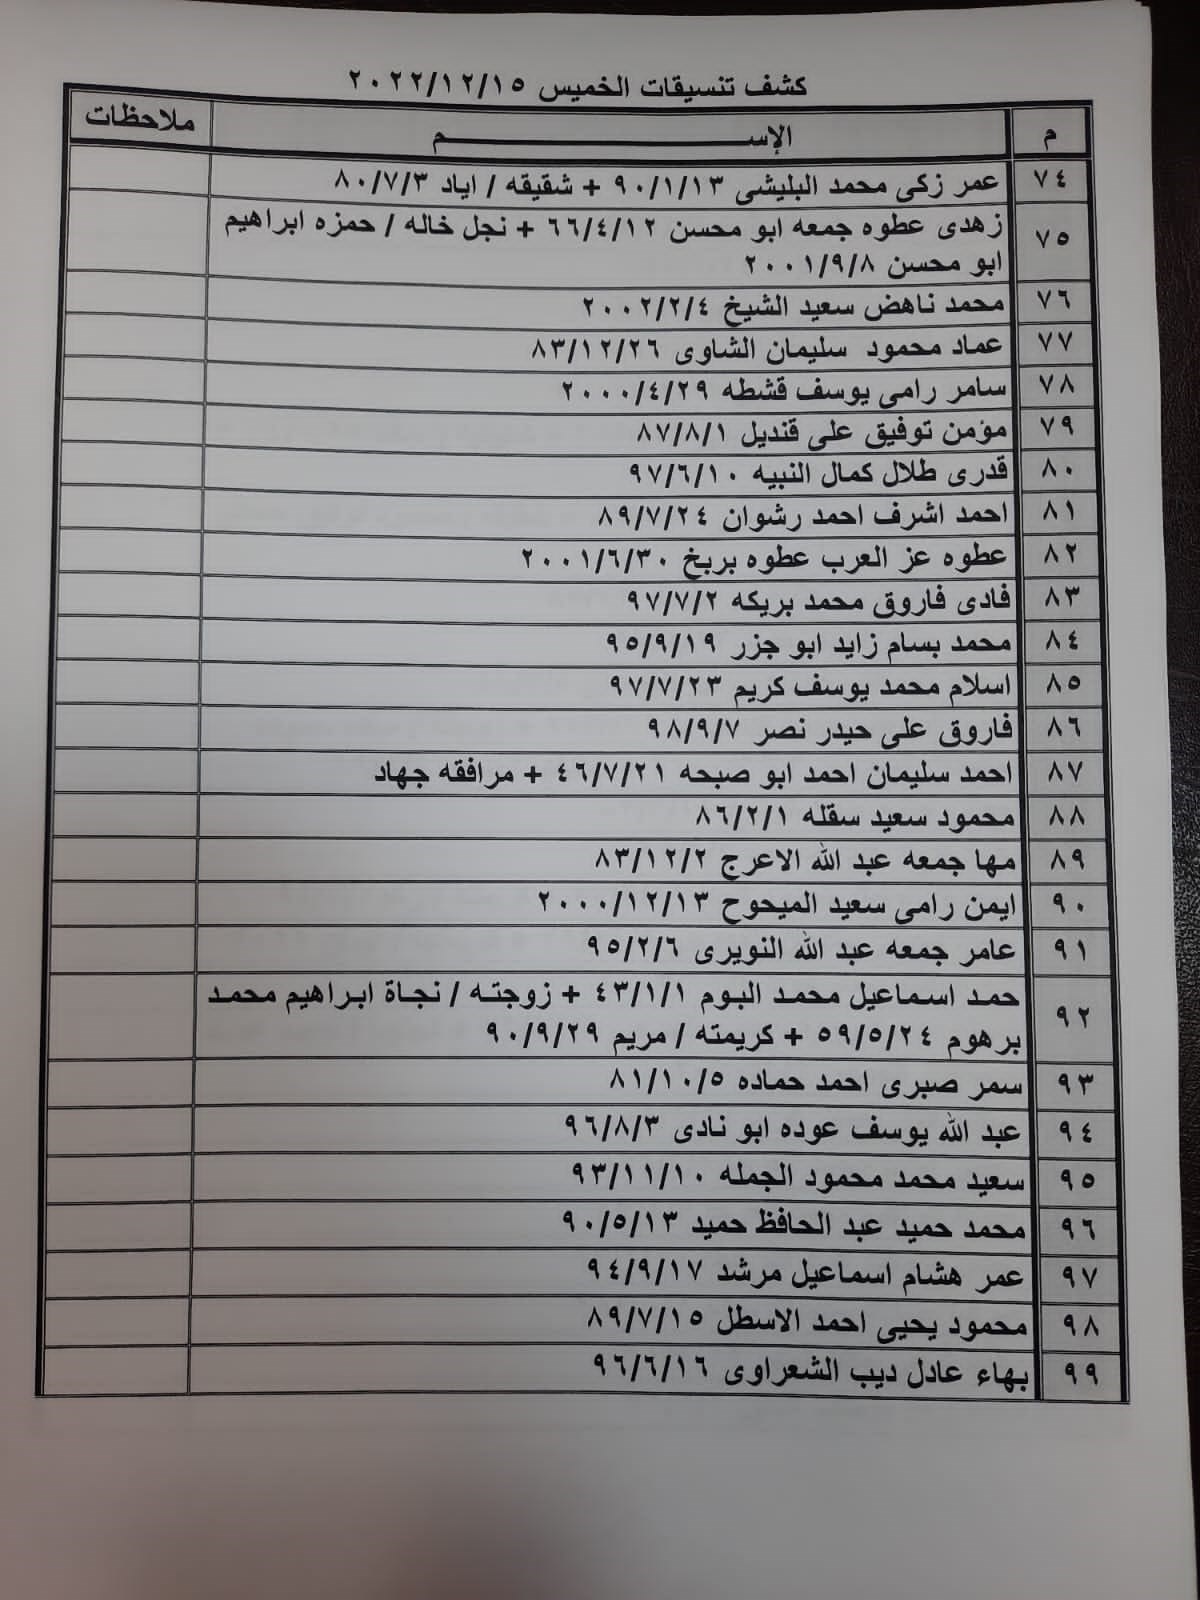 كشف تنسيقات الخميس ٢٠٢٢/١٢/١٥
م الإســـــم ملاحظات
٧٤ عمر زكى محمد البليشى ٩٠/١/١٣ + شقيقه / اياد ٨٠/٧/٣
٧٥ زهدى عطوه جمعه ابو محسن ٦٦/٤/١٢ + نجل خاله / حمزه ابراهيم
ابو محسن ٢٠٠١/٩/٨
٧٦ محمد ناهض سعيد الشيخ ٢٠٠٢/٢/٤
٧٧ عماد محمود سليمان الشاوى ٨٣/١٢/٢٦
٧٨ سامر رامى يوسف قشطه ٢٠٠٠/٤/٢٩
٧٩ مؤمن توفيق على قنديل ٨٧/٨/١
٨٠ قدرى طلال كمال النبيه ٩٧/٦/١٠
٨١ احمد اشرف احمد رشوان ٨٩/٧/٢٤
٨٢ عطوه عز العرب عطوه بربخ ٢٠٠١/٦/٣٠
٨٣ فادى فاروق محمد بريكه ٩٧/٧/٢
٨٤ محمد بسام زايد ابو جزر ٩٥/٩/١٩
٨٥ اسلام محمد يوسف كريم ٩٧/٧/٢٣
٨٦ فاروق على حيدر نصر ٩٨/٩/٧
٨٧ احمد سليمان احمد ابو صبحه ٤٦/٧/٢١ + مرافقه جهاد
٨٨ محمود سعيد سقله ٨٦/٢/١
٨٩ مها جمعه عبد الله الاعرج ٨٣/١٢/٢
٩٠ ايمن رامى سعيد الميحوح ٢٠٠٠/١٢/١٣
٩١ عامر جمعه عبد الله النويرى ٩٥/٢/٦
٩٢ حمد اسماعيل محمد البوم ٤٣/١/١ + زوجته / نجاة ابراهيم محمد
برهوم ٥٩/٥/٢٤ + كريمته / مريم ٩٠/٩/٢٩
٩٣ سمر صبرى احمد حماده ٨١/١٠/٥
٩٤ عبد الله يوسف عوده ابو نادى ٩٦/٨/٣
٩٥ سعيد محمد محمود الجمله ٩٣/١١/١٠
٩٦ محمد حميد عبد الحافظ حميد ٩٠/٥/١٣
٩٧ عمر هشام اسماعيل مرشد ٩٤/٩/١٧
٩٨ محمود يحيى احمد الاسطل ٨٩/٧/١٥
٩٩ بهاء عادل ديب الشعراوى ٩٦/٦/١٦